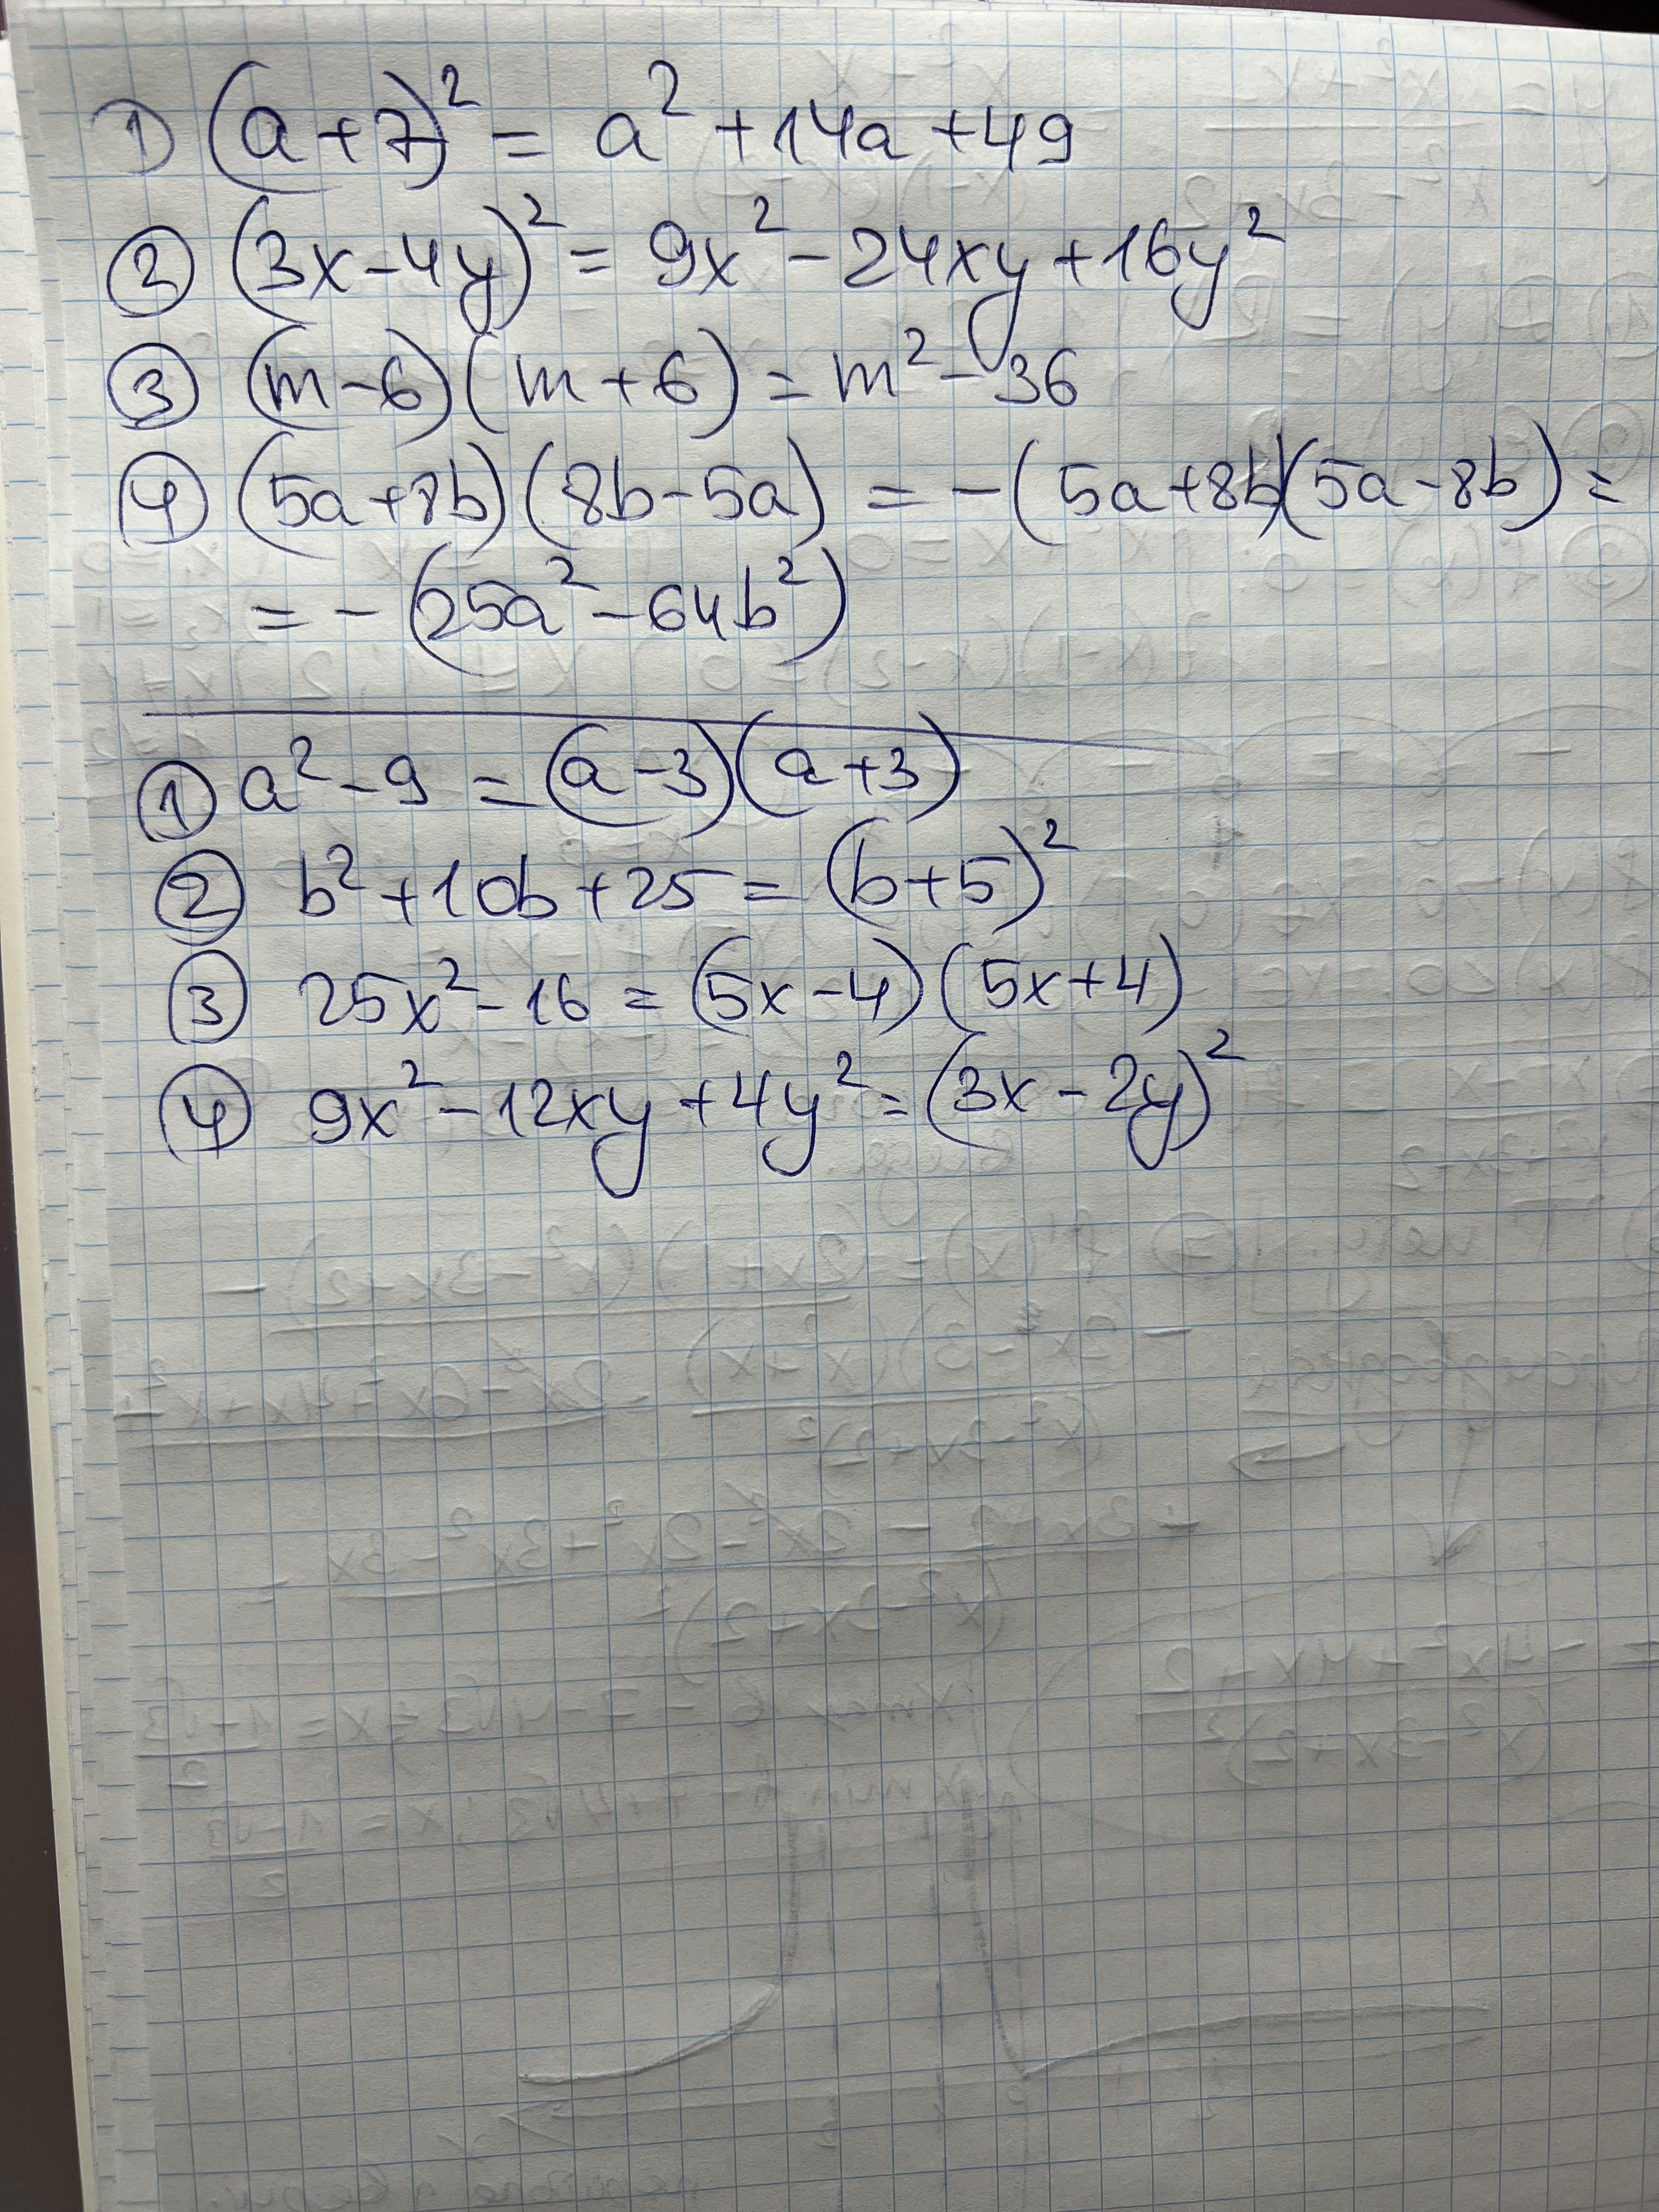 1) (a+7)² = a² +14a +49
② (3x-4y)² = 9x² - 24xy +16y²
③ (m-6)(m+6) = m² - 36
④ (5a+8b)(8b-5a) = -(5a+8b)(5a-8b) =
= -(25a² -64b²)
① a² - 9 = (a-3)(a+3)
② b² +10b +25 = (b+5)²
③ 25x² - 16 = (5x-4)(5x+4)
④ 9x² - 12xy +4y² = (3x-2y)²